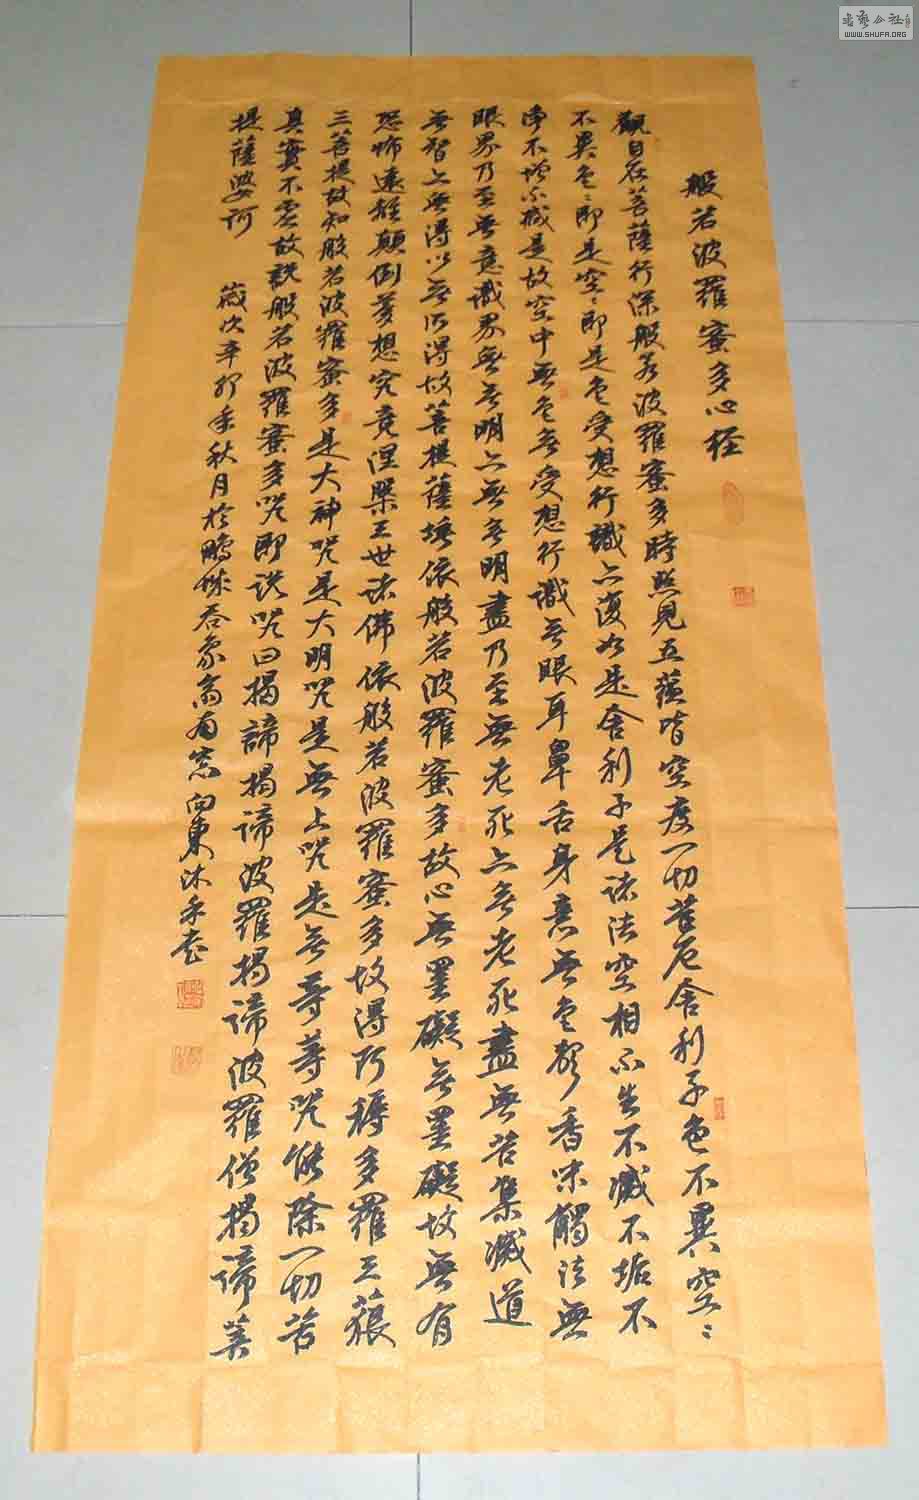 般若波羅蜜多心经
觀自在菩薩行深般若波羅蜜多時照見五蕴皆空度一切苦厄舍利子色不異空〻
不異色〻即是空〻即是色受想行識亦復如是舍利子是诸法空相不生不滅不垢不
净不增不减是故空中無色无受想行識无眼耳鼻舌身意無色聲香味觸法無
眼界乃至無意識界無无明亦無无明盡乃至無老死亦无老死盡無苦集滅道
無智亦無得以無所得故菩提薩埵依般若波羅蜜多故心無罣礙无罣礙故無有
恐怖遠離顛倒夢想究竟涅槃三世诸佛依般若波羅蜜多故得阿耨多羅三藐
三菩提故知般若波羅蜜多是大神咒是大明咒是無上咒是无等等咒能除一切苦
真實不虚故説般若波羅蜜多咒即説咒曰揭諦揭諦波羅揭諦波羅僧揭諦菩
提薩婆訶
歲次辛卯年秋月於鵬城吞象齋南窓向東沐手書
书艺公社
WWW.SHUFA.ORG